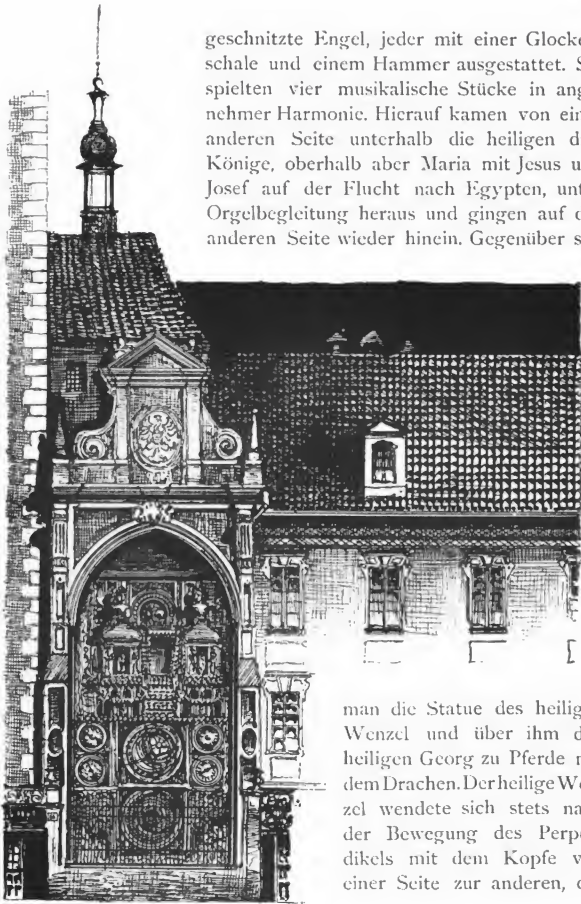 geschnitzte Engel, jeder mit einer Glocke
schale und einem Hammer ausgestattet. S
spielten vier musikalische Stücke in ang
nehmer Harmonie. Hierauf kamen von ein
anderen Seite unterhalb die heiligen d
Könige, oberhalb aber Maria mit Jesus u
Josef auf der Flucht nach Egypten, unt
Orgelbegleitung heraus und gingen auf d
anderen Seite wieder hinein. Gegenüber s
man die Statue des heilig
Wenzel und über ihm d
heiligen Georg zu Pferde m
dem Drachen. Der heilige We
zel wendete sich stets na
der Bewegung des Perpe
dikels mit dem Kopfe v
einer Seite zur anderen, d